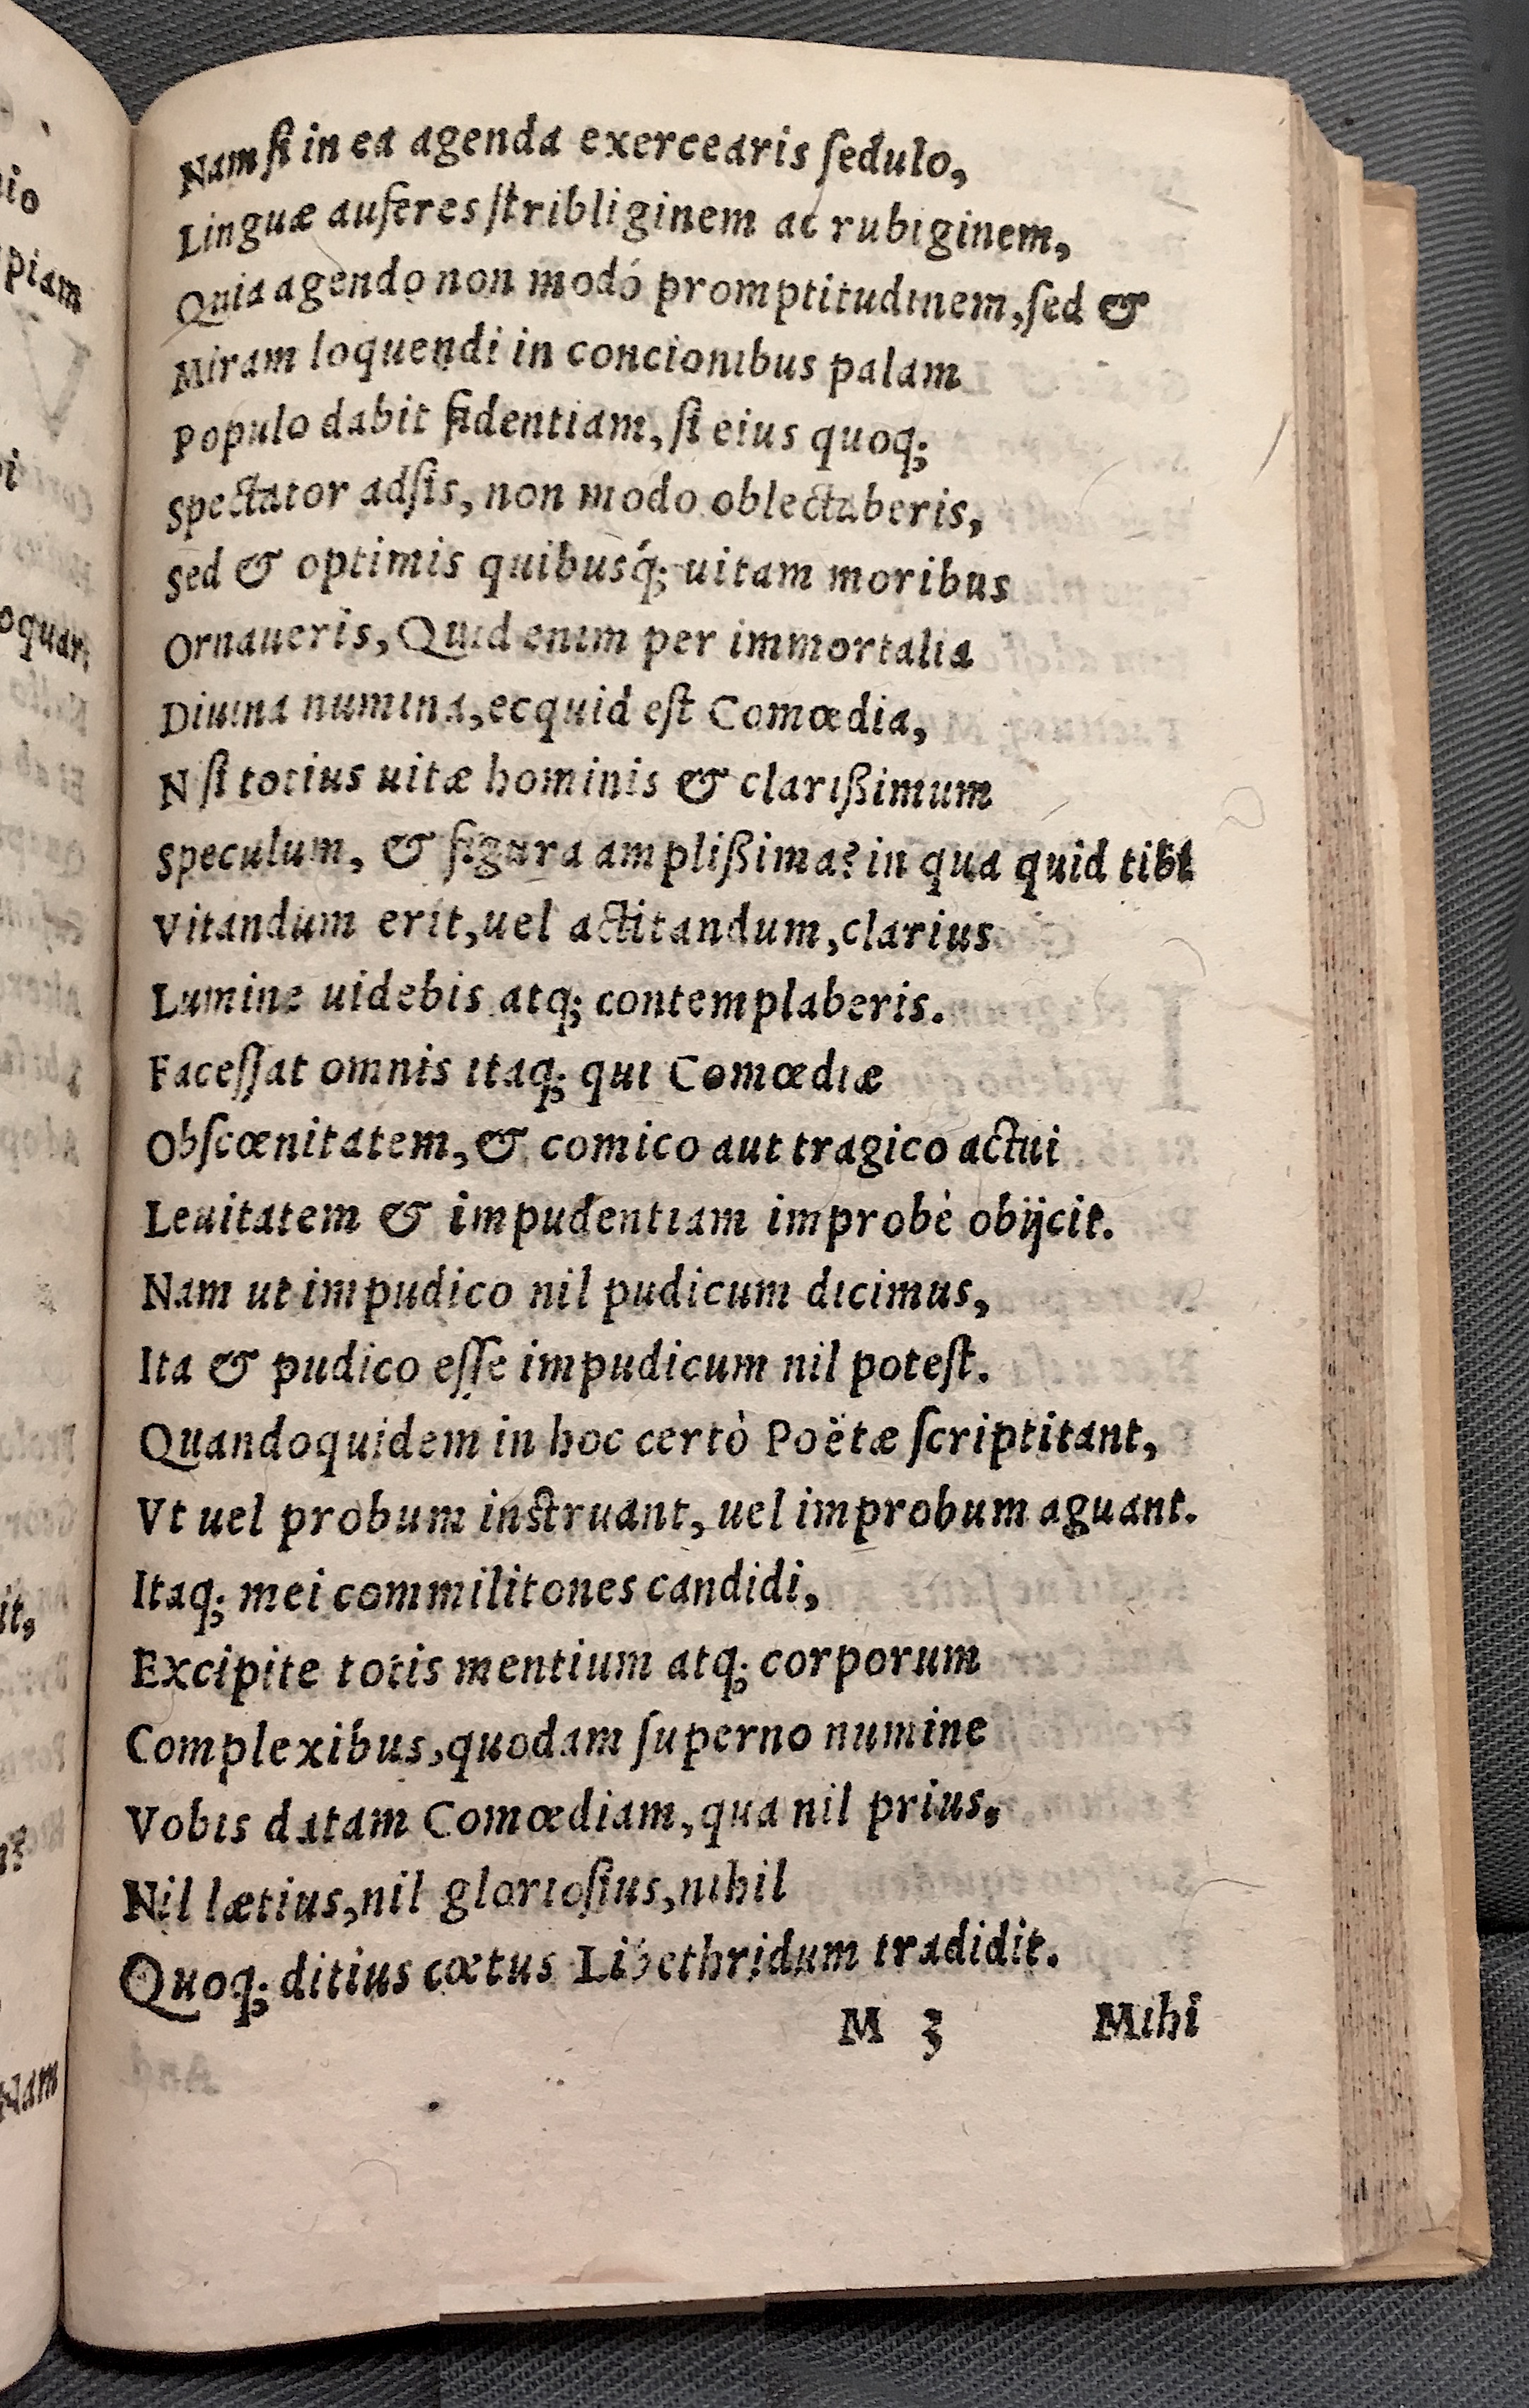 Nam ſi in ea agenda exercearis ſedulo,
Linguæ auferes ſtribliginem ac rubiginem,
Quia agendo non modó promptitudinem, ſed &
Miram loquendi in concionibus palam
Populo dabit fidentiam, ſi eius quoq;
Spectator adſis, non modo oblectaberis,
Sed & optimis quibusq́; uitam moribus
Ornaueris, Quid enim per immortalia
Diuina numina, ecquid eſt Comœdia,
N ſi totius uitæ hominis & clarißimum
Speculum, & figura amplißima? in qua quid tibi
Vitandum erit, uel actitandum, clarius
Lumine uidebis atq; contemplaberis.
Faceſſat omnis itaq; qui Comœdiæ
Obſcœnitatem, & comico aut tragico actui
Leuitatem & impudentiam improbè obijcit.
Nam ut impudico nil pudicum dicimus,
Ita & pudico eſſe impudicum nil poteſt.
Quandoquidem in hoc certò Poëtæ ſcriptitant,
Vt uel probum inſtruant, uel improbum aguant.
Itaq; mei commilitones candidi,
Excipite totis mentium atq; corporum
Complexibus, quodam ſuperno numine
Vobis datam Comœdiam, qua nil prius,
Nil lætius, nil glorioſius, nihil
Quoq; ditius cœtus Libethridum tradidit.
M 3 Mihi